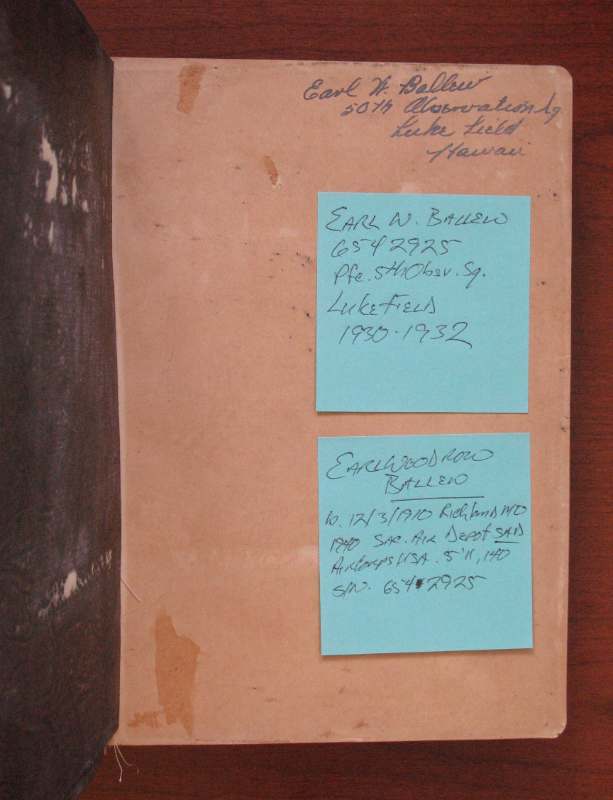 Earl W. Ballew
50th Observation Sq
Luke Field
Hawaii
EARL W. BALLEW
6542925
Pfc. 5th Obsv. Sq.
LUKE FIELD
1930-1932
EARL WOODROW
BALLEW
b. 12/3/1910 Richland MO
1940 SAC. AIR DEPOT SAD
Air Corps USA. 5'11, 140
S/N. 654 2925